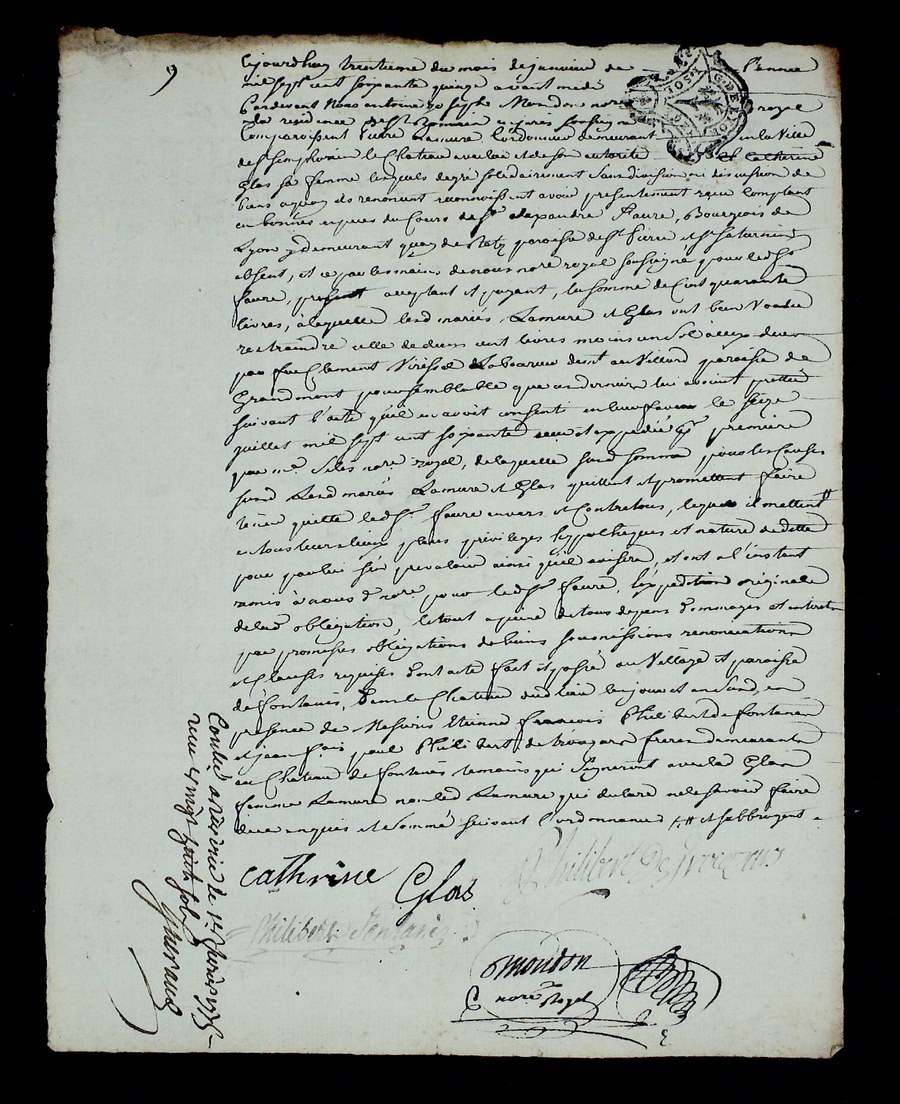 9
aujourdhuy trentieme du mois de janvier de l'année
mil sept cent soixante quinze avant midy
Pardevant Nous antoine joseph Mondon nore royal
a la residence de St Romain en jarès soussigné
Comparoissent Pierre Lamure Cordonnier demeurant en la Ville
de St Symphorien le Chateau avec lui et de son autorité Catherine
Glas sa femme lesquels de gré solidairement sans division ni discution de
biens a quoy ils renoncent reconnoissent avoir presentement reçu comptant
en bonnes especes du Cours de Sr alexandre Faure, Bourgeois de
Lyon y demeurant quay de Retz paroisse de St Pierre et St Saturnin
absent, et ce par les mains de nous nore royal soussigné pour led Sr
faure, present acceptant et payant, la somme de Cent quarante
livres, a laquelle lesd mariés Lamure et Glas ont bien Voulu
restraindre celle de deux cent livres moins un Sol a eux due
par feu Clement Laboureur demt au Villard paroisse de
Grandmont pour semblable que ce dernier lui avoient prettée
suivant l'acte qu'il en avoit consenti en leur faveur le seize
juillet mil sept cent soixante reçu et expedié premiere
par me nore royal, de laquelle susd somme, pour les Causes
susd Lesd mariés Lamure et Glas quittent et promettent faire
tenir quitte led Sr faure envers et Contre tous, lequel ils mettent #
en tous leurs lieux places privileges hyppotheques et nature de dette
pour par lui s'en prevaloir ainsi qu'il avisera, et ont a l'instant
remis à nous d nore pour led Sr faure, l'expedition originale
de lad obligation, le tout a peine de tous depens dommages et interets
par promesses obligations de biens soumissions renonciations
et Clauses requises dont acte fait et passé au Village et paroisse
de fontanès, dans le Chateau dud lieu les jour et an susd, en
presence de Messires Etienne francois Philibert de fontanès
et jean fois paul Philibert de trouzars freres demeurants
au Chateau de fontanès temoins qui signeront avec lad Glas
femme Lamure non led Lamure qui declare ne le savoir faire
de ce enquis et sommé suivant l'ordonnance # et subbrogent
Catherine Glas
Philibert De
Philibert Fontanès
Mondon
nore Royal
Contlé a le 1er 1775
reçu vingt huit sols